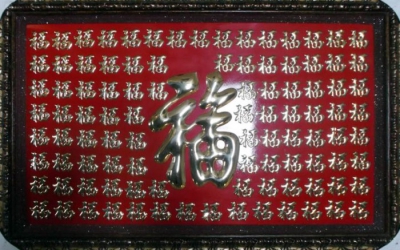 福福福福福福福福福福福福福福福
福福福福福福 福福福福福福福
福福福福福福 福福福福福福
福福福福福 福福福福福福
福
福福福福福 福福福福福福
福福福福福 福福福福福福
福福福福福福 福福福福福福福
福福福福福福福福福福福福福福